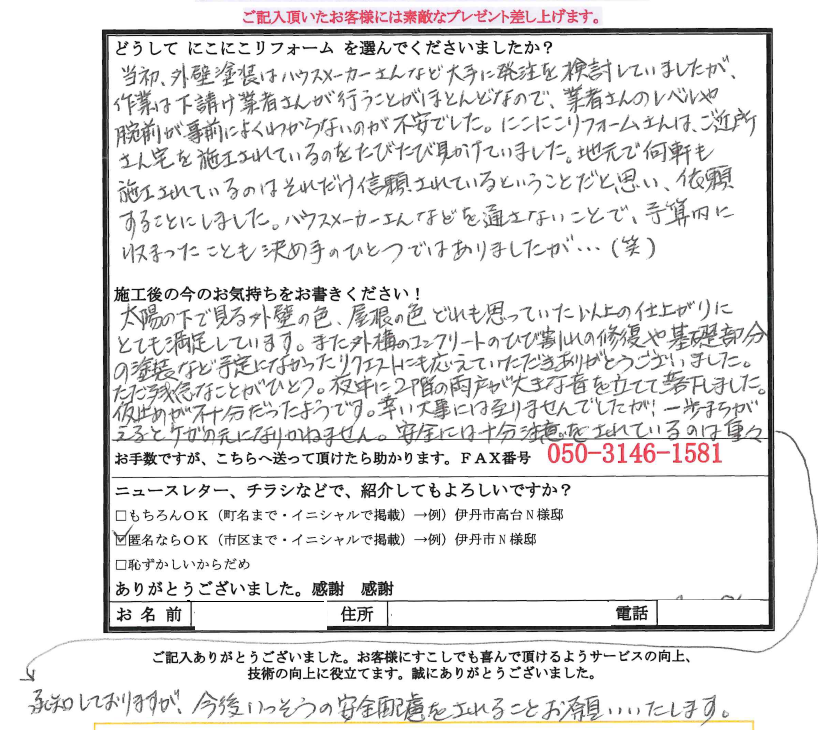 ご記入頂いたお客様には素敵なプレゼント差し上げます。
どうして にこにこリフォーム を選んでくださいましたか？
当初、外壁塗装はハウスメーカーさんなど大手に発注を検討していましたが、
作業は下請け業者さんが行うことがほとんどなので、業者さんのレベルや
腕前が事前によくわからないのが不安でした。にこにこリフォームさんは、ご近所
さん宅を施工されているのをたびたび見かけていました。地元で何軒も
施工されているのはそれだけ信頼されているということだと思い、依頼
することにしました。ハウスメーカーさんなどを通さないことで、予算内に
収まったことも決め手のひとつではありましたが…（笑）
施工後の今のお気持ちをお書きください！
太陽の下で見る外壁の色、屋根の色どれも思っていた以上の仕上がりに
とても満足しています。また外構のコンクリートのひび割れの修復や基礎部分
の塗装など予定になかったリクエストにも応えていただきありがとうございました。
ただ残念なことがひとつ。夜中に2階の雨戸が大きな音を立てて落下しました。
仮止めが不十分だったようです。幸い大事には至りませんでしたが、一歩まちが
えるとケガの元になりかねません。安全には十分注意をされているのは重々
お手数ですが、こちらへ送って頂けたら助かります。ＦＡＸ番号 050-3146-1581
ニュースレター、チラシなどで、紹介してもよろしいですか？
□もちろんＯＫ（町名まで・イニシャルで掲載）→例）伊丹市高台Ｎ様邸
☑匿名ならＯＫ（市区まで・イニシャルで掲載）→例）伊丹市Ｎ様邸
□恥ずかしいからだめ
ありがとうございました。感謝 感謝
お名前 住所 電話
ご記入ありがとうございました。お客様にすこしでも喜んで頂けるようサービスの向上、
技術の向上に役立てます。誠にありがとうございました。
承知しておりますが、今後いっそうの安全配慮をされることお願いいたします。